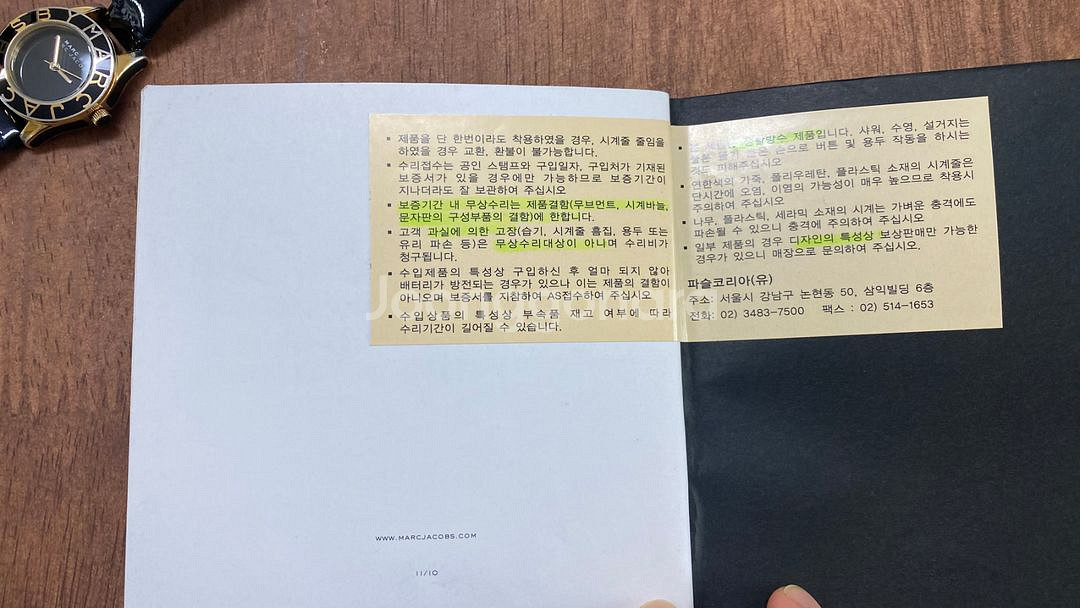 MARC JACOBS
제품을 단 한번이라도 착용하였을 경우, 시계줄 줄임을
하였을 경우 교환, 환불이 불가능합니다.
수리접수는 공인 스탬프와 구입일자, 구입처가 기재된
보증서가 있을 경우에만 가능하므로 보증기간이
지나더라도 잘 보관하여 주십시오
보증기간 내 무상수리는 제품결함(무브먼트, 시계바늘,
문자판의 구성부품의 결함)에 한합니다.
고객 과실에 의한 고장(습기, 시계줄 흠집, 용두 또는
유리 파손 등)은 무상수리대상이 아니며 수리비가
청구됩니다.
수입제품의 특성상 구입하신 후 얼마 되지 않아
배터리가 방전되는 경우가 있으나 이는 제품의 결함이
아니오며 보증서를 지참하여 AS접수하여 주십시오
수입상품의 특성상 부속품 재고 여부에 따라
수리기간이 길어질 수 있습니다.
제품입니다. 샤워, 수영, 설거지는
손으로 버튼 및 용두 작동을 하시는
것도 피해주십시오
연한색의 가죽, 폴리우레탄, 플라스틱 소재의 시계줄은
단시간에 오염, 이염의 가능성이 매우 높으므로 착용시
주의하여 주십시오
나무, 플라스틱, 세라믹 소재의 시계는 가벼운 충격에도
파손될 수 있으니 충격에 주의하여 주십시오
일부 제품의 경우 디자인의 특성상 보상판매만 가능한
경우가 있으니 매장으로 문의하여 주십시오.
파슬코리아(유)
주소: 서울시 강남구 논현동 50, 삼익빌딩 6층
전화: 02) 3483-7500 팩스 : 02) 514-1653
WWW.MARCJACOBS.COM
11/10